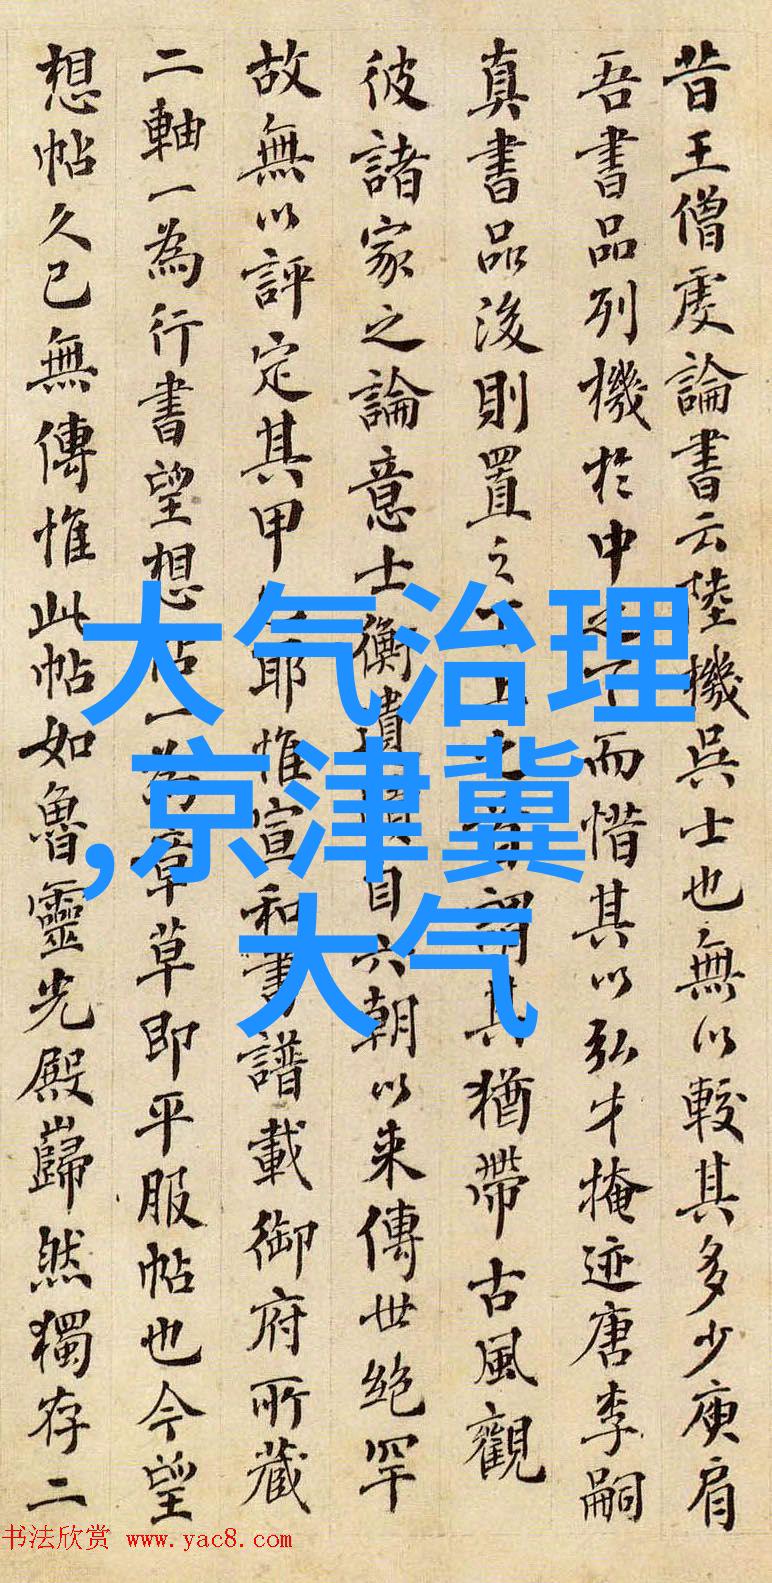 昔王僧虔論書云陸機吳士也無以較其多少庾肩
吾書品列機於中之下而惜其以弘才掩迹唐李嗣
真書品後則置之下上之首謂其猶帶古風觀
彼諸家之論意士衡遺蹟自六朝以来傳世絶罕
故無以評定其甲耶惟宣和書譜載御府所藏
二軸一為行書望想帖一為章草即平服帖也今望
想帖久已無傳惟此帖如魯靈光殿巋然獨存二
大气治理
,京津冀
大气
书法欣赏 www.yac8.com